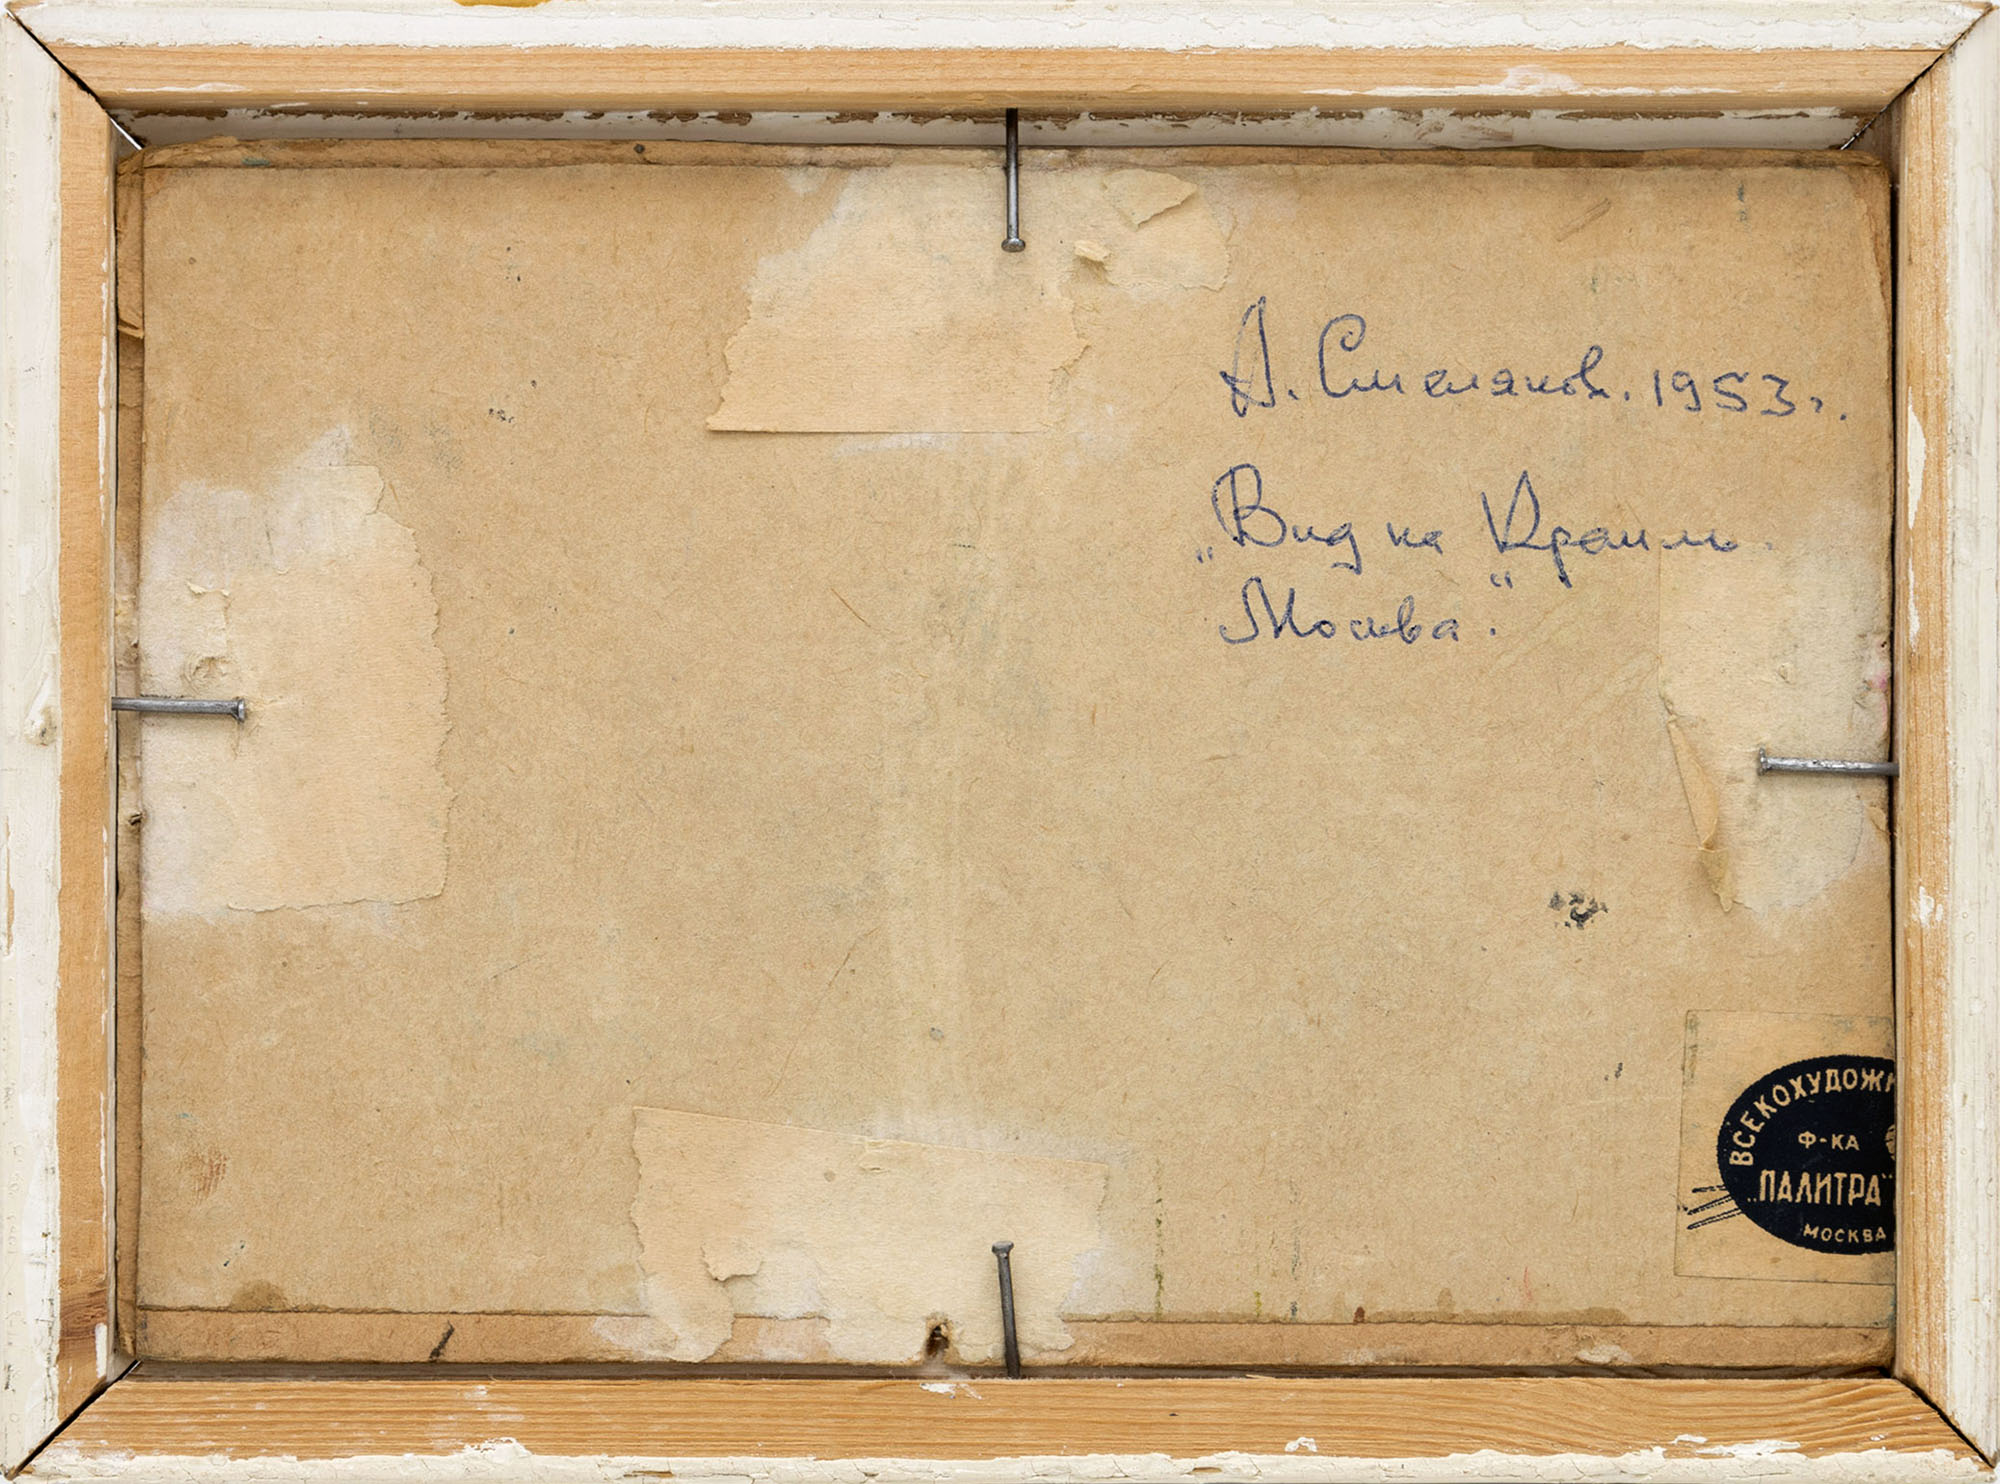 А. Смеляков. 1953г.
„Вид на Кремль.
Москва."
ВСЕКОХУДОЖН
Ф-КА
„ПАЛИТРА"
МОСКВА